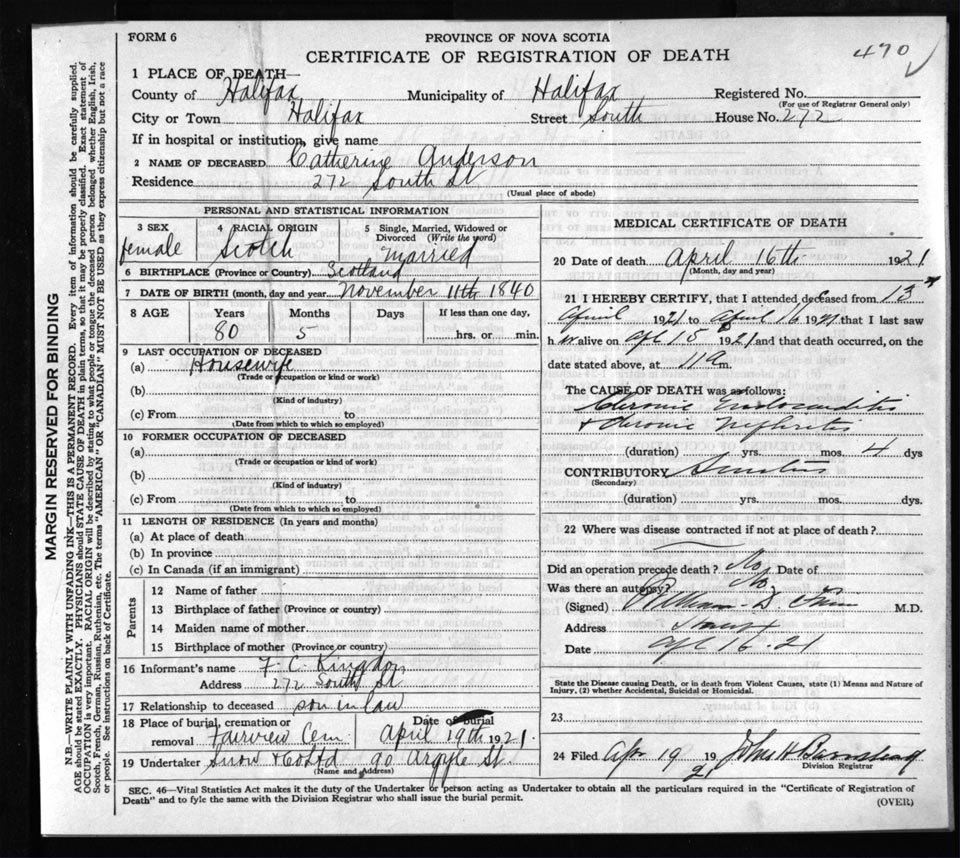 FORM 6
PROVINCE OF NOVA SCOTIA
470
CERTIFICATE OF REGISTRATION OF DEATH
1 PLACE OF DEATH—
County of Halifax Municipality of Halifax Registered No.
(For use of Registrar General only)
City or Town Halifax Street South House No. 272
If in hospital or institution, give name
2 NAME OF DECEASED Catherine Anderson
Residence 272 South St
(Usual place of abode)
PERSONAL AND STATISTICAL INFORMATION
3 SEX 4 RACIAL ORIGIN 5 Single, Married, Widowed or Divorced (Write the word)
female Scotch Married
6 BIRTHPLACE (Province or Country) Scotland
7 DATE OF BIRTH (month, day and year) November 11th 1840
8 AGE Years Months Days If less than one day,
80 5 hrs. or min.
9 LAST OCCUPATION OF DECEASED
(a) Housewife
(Trade or occupation or kind or work)
(b)
(Kind of industry)
(c) From to
(Date from which to which so employed)
10 FORMER OCCUPATION OF DECEASED
(a)
(Trade or occupation or kind of work)
(b)
(Kind of industry)
(c) From to
(Date from which to which so employed)
11 LENGTH OF RESIDENCE (In years and months)
(a) At place of death
(b) In province
(c) In Canada (if an immigrant)
Parents
12 Name of father
13 Birthplace of father (Province or country)
14 Maiden name of mother
15 Birthplace of mother (Province or country)
16 Informant's name F. C. Kingdon
Address 272 South St
17 Relationship to deceased son in law
18 Place of burial, cremation or removal Fairview Cem
Date of burial April 19th 1921.
19 Undertaker Snow & Co Ltd 90 Argyle St.
(Name and Address)
MEDICAL CERTIFICATE OF DEATH
20 Date of death April 16th 1921
(Month, day and year)
21 I HEREBY CERTIFY, that I attended deceased from 13th
April 1921 to April 16 1921 that I last saw
her alive on Apl 15 1921 and that death occurred, on the
date stated above, at 11 a m.
The CAUSE OF DEATH was as follows:
Chronic Endocarditis
& chronic Nephritis
(duration) yrs. mos. 4 dys
CONTRIBUTORY
(Secondary)
(duration) yrs. mos. dys.
22 Where was disease contracted if not at place of death?
Did an operation precede death? No Date of
Was there an autopsy? No
(Signed) William D. M.D.
Address
Date Apl 16. 21
State the Disease causing Death, or in death from Violent Causes, state (1) Means and Nature of
Injury, (2) whether Accidental, Suicidal or Homicidal.
23
24 Filed Apr 19 1921 John H Barnstead
Division Registrar
SEC. 46—Vital Statistics Act makes it the duty of the Undertaker or person acting as Undertaker to obtain all the particulars required in the "Certificate of Registration of
Death" and to fyle the same with the Division Registrar who shall issue the burial permit.
(OVER)
MARGIN RESERVED FOR BINDING
N.B.—WRITE PLAINLY WITH UNFADING INK—THIS IS A PERMANENT RECORD. Every item of information should be carefully supplied.
AGE should be stated EXACTLY. PHYSICIANS should STATE CAUSE OF DEATH in plain terms, so that it may be properly classified. Exact statement of
OCCUPATION is very important. RACIAL ORIGIN will be described by stating to what people or tongue the deceased person belonged whether English, Irish,
Scotch, French, German, Russian, Ruthenian, etc. The terms "AMERICAN" OR "CANADIAN" MUST NOT BE USED as they express citizenship but not a race
or people. See instructions on back of Certificate.